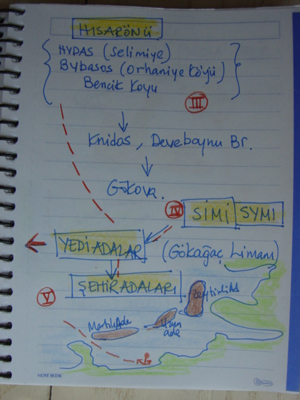 HİSARÖNÜ
HYDAS (Selimiye)
BYBASOS (Orhaniye Köyü)
Bencik Koyu
III
Knidos, Deveboynu Br.
Gökova.
IV SİMİ SYMI
YEDİ ADALAR (Gökağaç Limanı)
ŞEHİR ADALARI
V
Uzun
ada